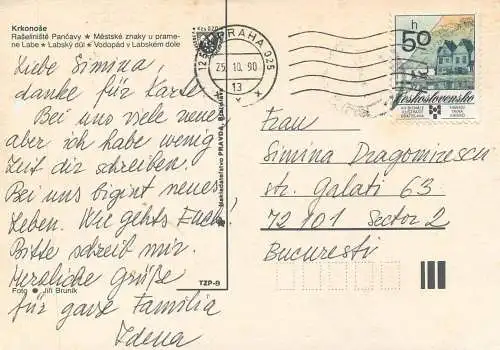 Krkonoše
Rašeliniště Pančavy ★ Městské znaky u prame-
ne Labe ★ Labský důl ★ Vodopád v Labském dole
Liebe Simina,
danke für Karte.
Bei uns viele neues
aber ich habe wenig
Zeit dir schreiben.
Bei uns bigint neues
Leben. Wie gehts Euch!
Bitte schreib mir.
Herzliche Grüße
für ganze Familia
Zdena
Foto ● Jiří Bruník
TZP-9
Nakladatelství PRAVDA, Bratislava
PRAHA 025
25. 10. 90
13
h
50
Československo
Frau
Simina Dragomirescu
str. Galati 63
72101 Sector 2
Bucuresti